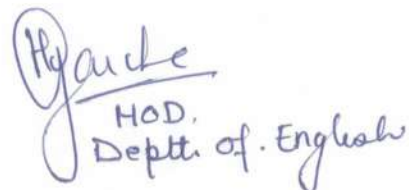 HOD.
Deptt. Of. English